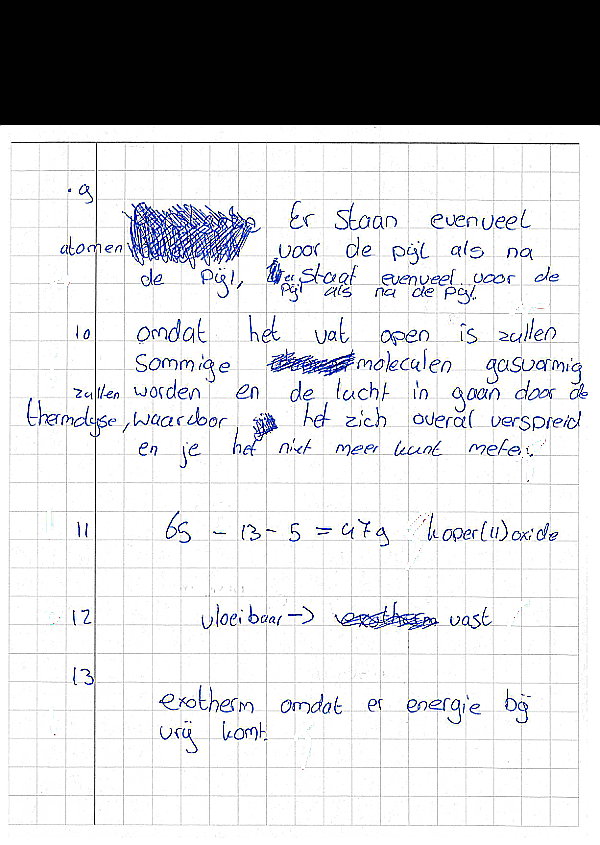 .9 Er staan evenveel
atomen voor de pijl als na
de pijl, er staat evenveel voor de
pijl als na de pijl.
10 omdat het vat open is zullen
sommige moleculen gasvormig
zullen worden en de lucht in gaan door de
thermolyse, waardoor het zich overal verspreid
en je het niet meer kunt meten.
11 65 - 13 - 5 = 47g koper(II)oxide
12 vloeibaar -> vast
13
exotherm omdat er energie bij
vrij komt.